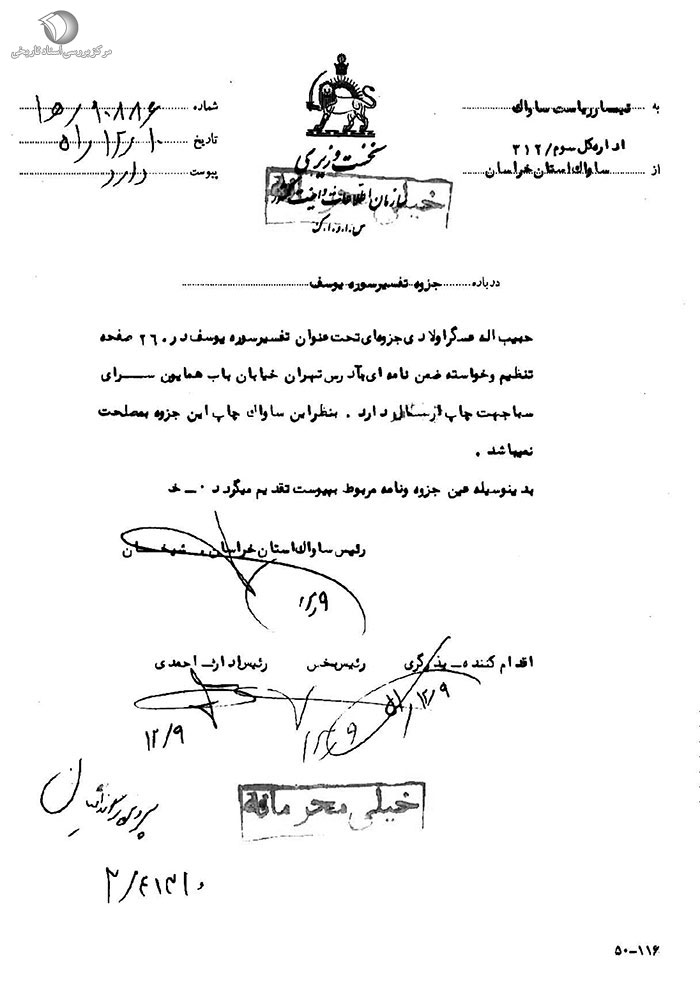 مرکز بررسی اسناد تاریخی
به تیمسار ریاست ساواک
اداره کل سوم/۳۱۲
از ساواک استان خراسان
شماره ۹۰۸۸۶/ه۱
تاریخ ۱۰/۱۲/۵۱
پیوست دارد
نخست وزیری
سازمان اطلاعات و امنیت کشور
س.ا.و.ا.ک
خیلی محرمانه
درباره جزوه تفسیر سوره یوسف
حبیب اله عسگراولادی جزوه‌ای تحت عنوان تفسیر سوره یوسف در ۲۶۰ صفحه
تنظیم و خواسته ضمن نامه ای بآدرس تهران خیابان باب همایون سرای
سبا جهت چاپ ارسال دارد . بنظر این ساواک چاپ این جزوه بمصلحت
نمیباشد .
بدینوسیله عین جزوه ونامه مربوط بپیوست تقدیم میگردد ۰ــ خ
رئیس ساواک استان خراسان . شیخان
۱۲/۹
اقدام کننده ــ پذیرگری رئیس بخش رئیس اداره احمدی
۱۲/۹
۵۱/۱۲/۹
۱۲/۹
۱۲/۹
خیلی محرمانه
۵۰-۱۱۶